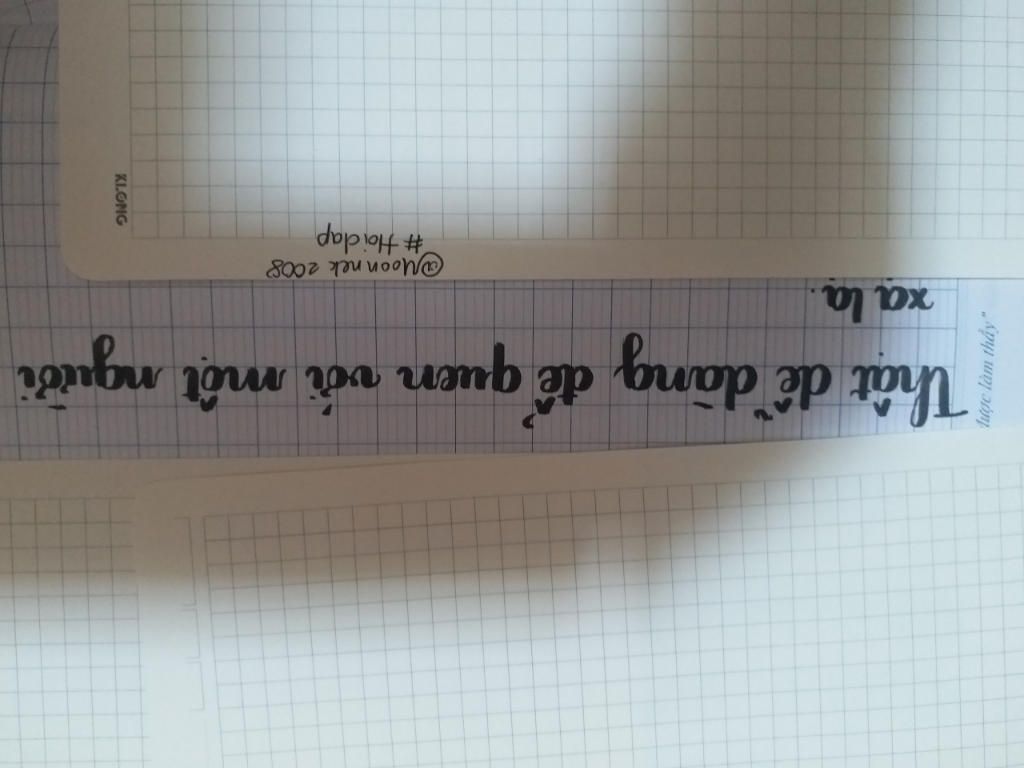 Thật dễ dàng để quen với một người
xạ lạ.
@Moonnek 2008
# Hoidap
KLONG
làm thầy"